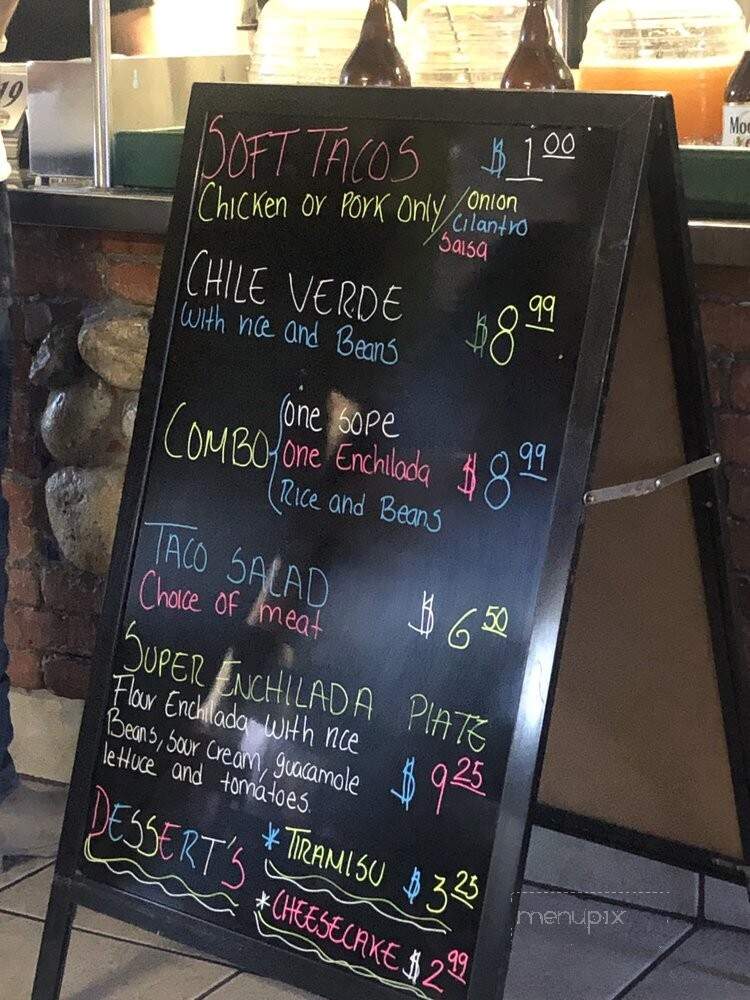 19
SOFT TACOS $1.00
Chicken or Pork Only / Onion
Cilantro
Salsa
CHILE VERDE
with rice and Beans $8.99
COMBO
one sope
one Enchilada $8.99
Rice and Beans
TACO SALAD
Choice of meat $6.50
SUPER ENCHILADA PLATE
Flour Enchilada with rice
Beans, sour cream, guacamole $9.25
lettuce and tomatoes.
DESSERT'S
* TIRAMISU $3.25
* CHEESECAKE $2.99
menupix